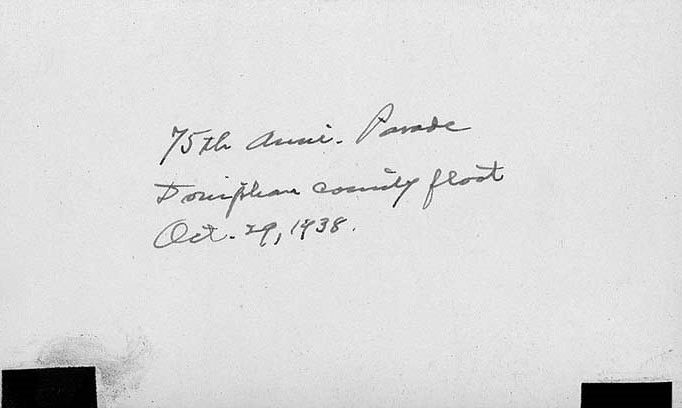 75th Anni. Parade
Doniphan county float
Oct. 29, 1938.